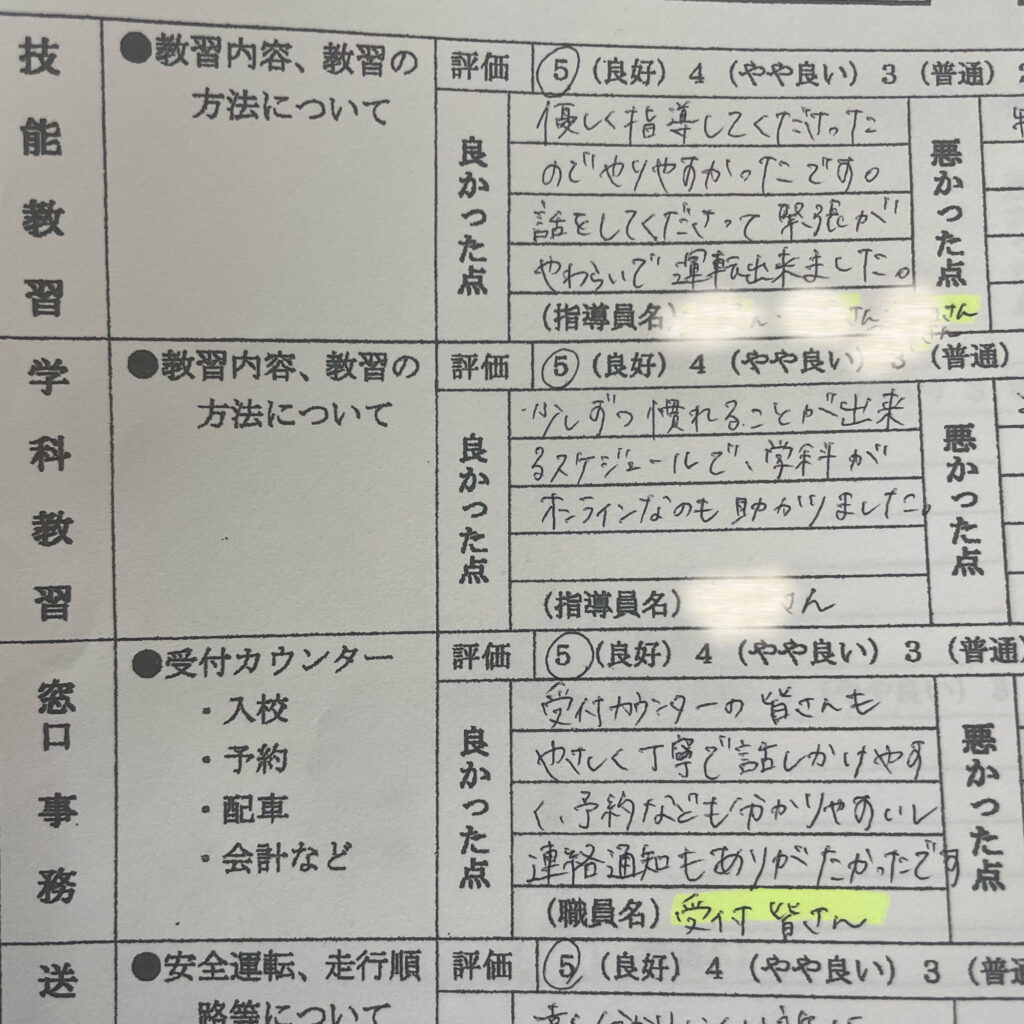 技能教習
●教習内容、教習の
方法について
評価 5 (良好) 4 (やや良い) 3 (普通) 2
良かった点
優しく指導してくださった
のでやりやすかったです。
話をしてくださって緊張が
やわらいで運転出来ました。
(指導員名) さん さん
悪かった点
学科教習
●教習内容、教習の
方法について
評価 5 (良好) 4 (やや良い) 3 (普通)
良かった点
少しずつ慣れることが出来
るスケジュールで、学科が
オンラインなのも助かりました。
(指導員名) さん
悪かった点
窓口事務
●受付カウンター
・入校
・予約
・配車
・会計など
評価 5 (良好) 4 (やや良い) 3 (普通)
良かった点
受付カウンターの皆さんも
やさしく丁寧で話しかけやす
く、予約なども分かりやすいし
連絡通知もありがたかったです
(職員名) 受付 皆さん
悪かった点
送
●安全運転、走行順
路等について
評価 5 (良好) 4 (やや良い) 3 (普通